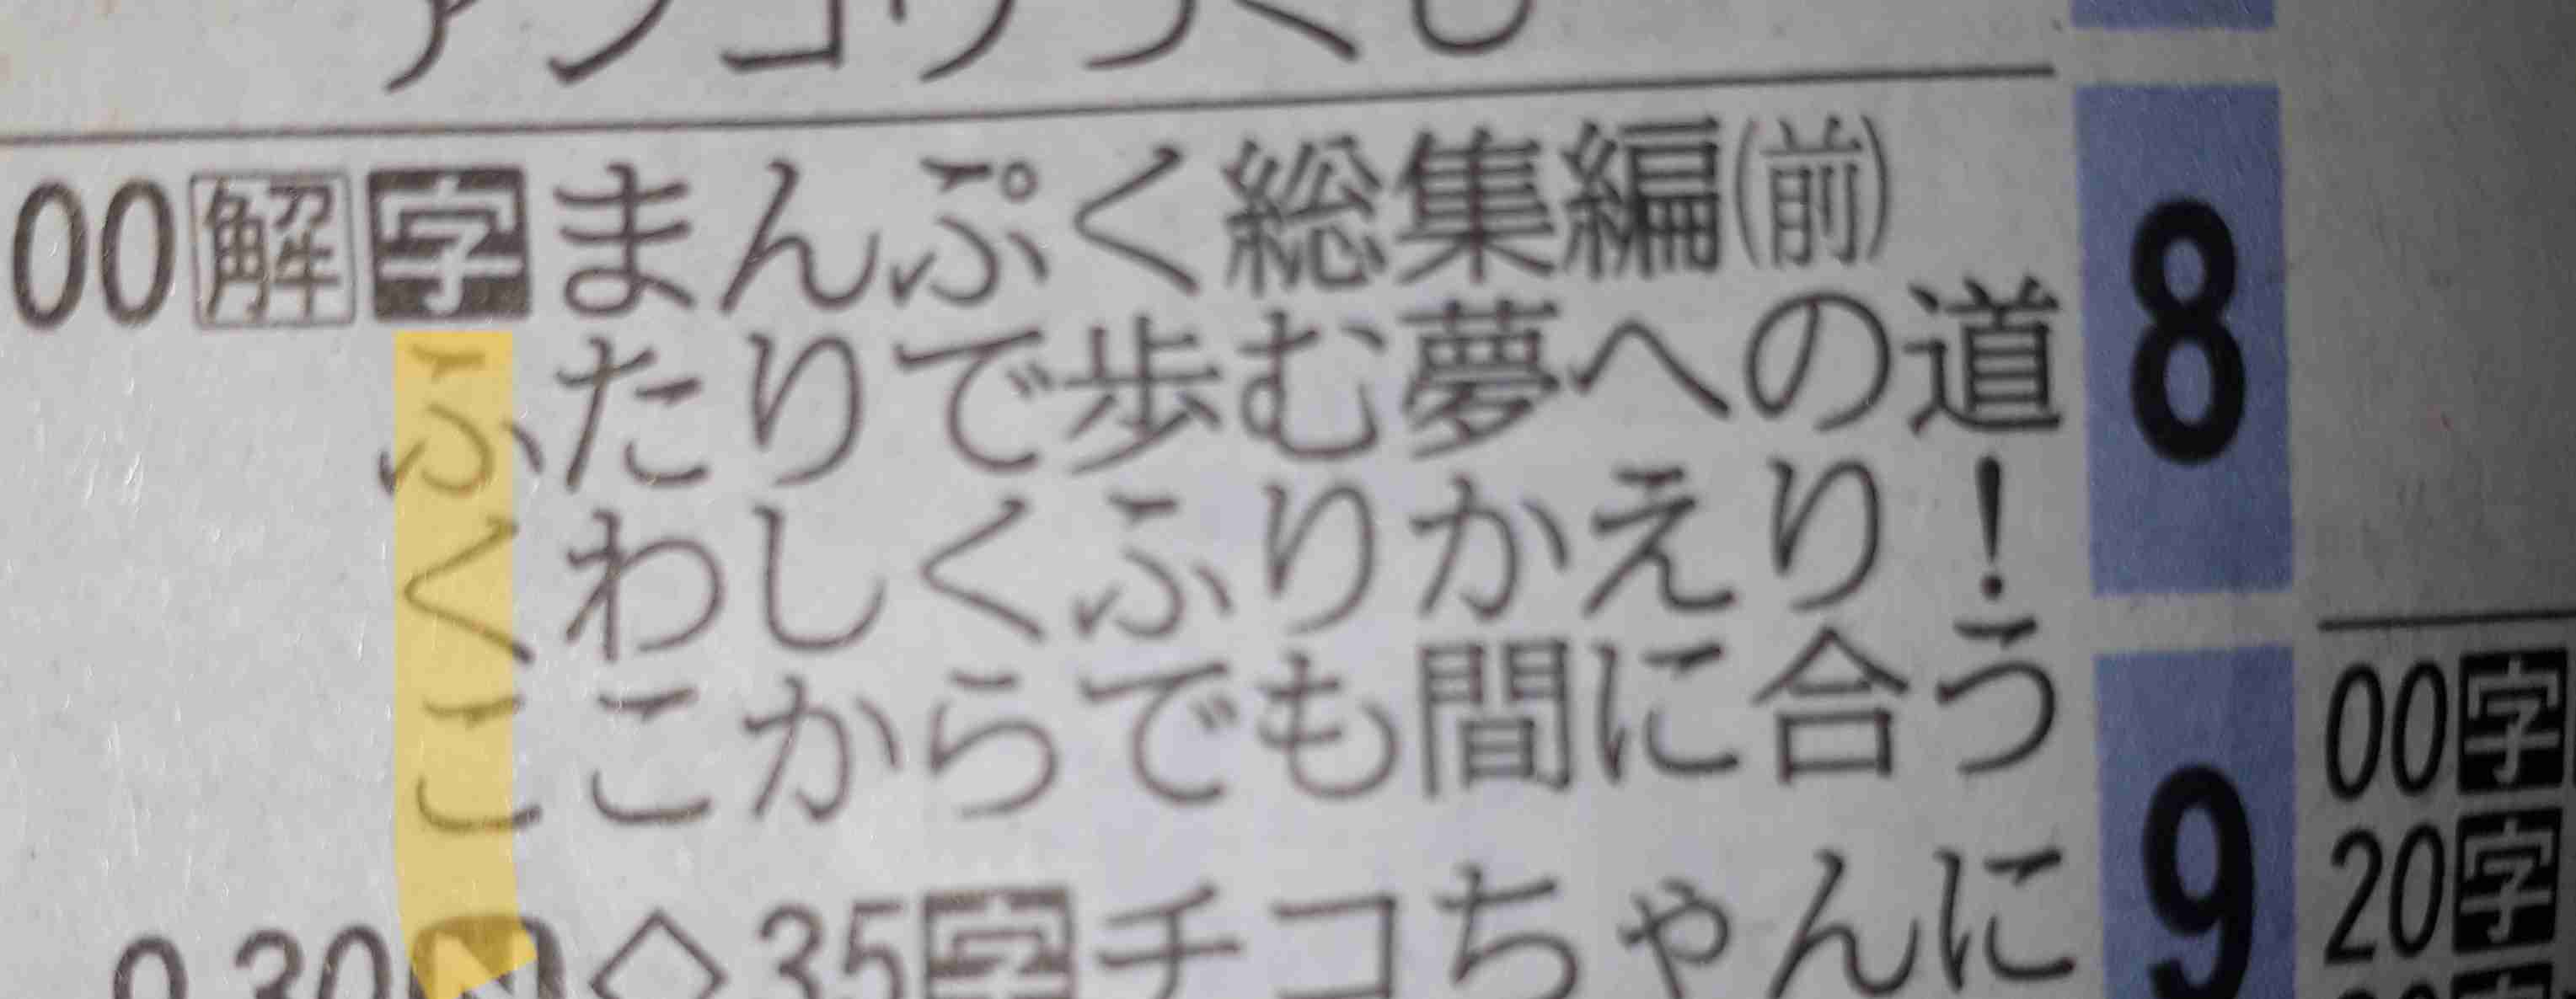 アンコウづくし
00解字まんぷく総集編(前)
ふたりで歩む夢への道!
くわしくふりかえり!
ここからでも間に合う
9.30N◇35字チコちゃんに
8
9
00字
20字